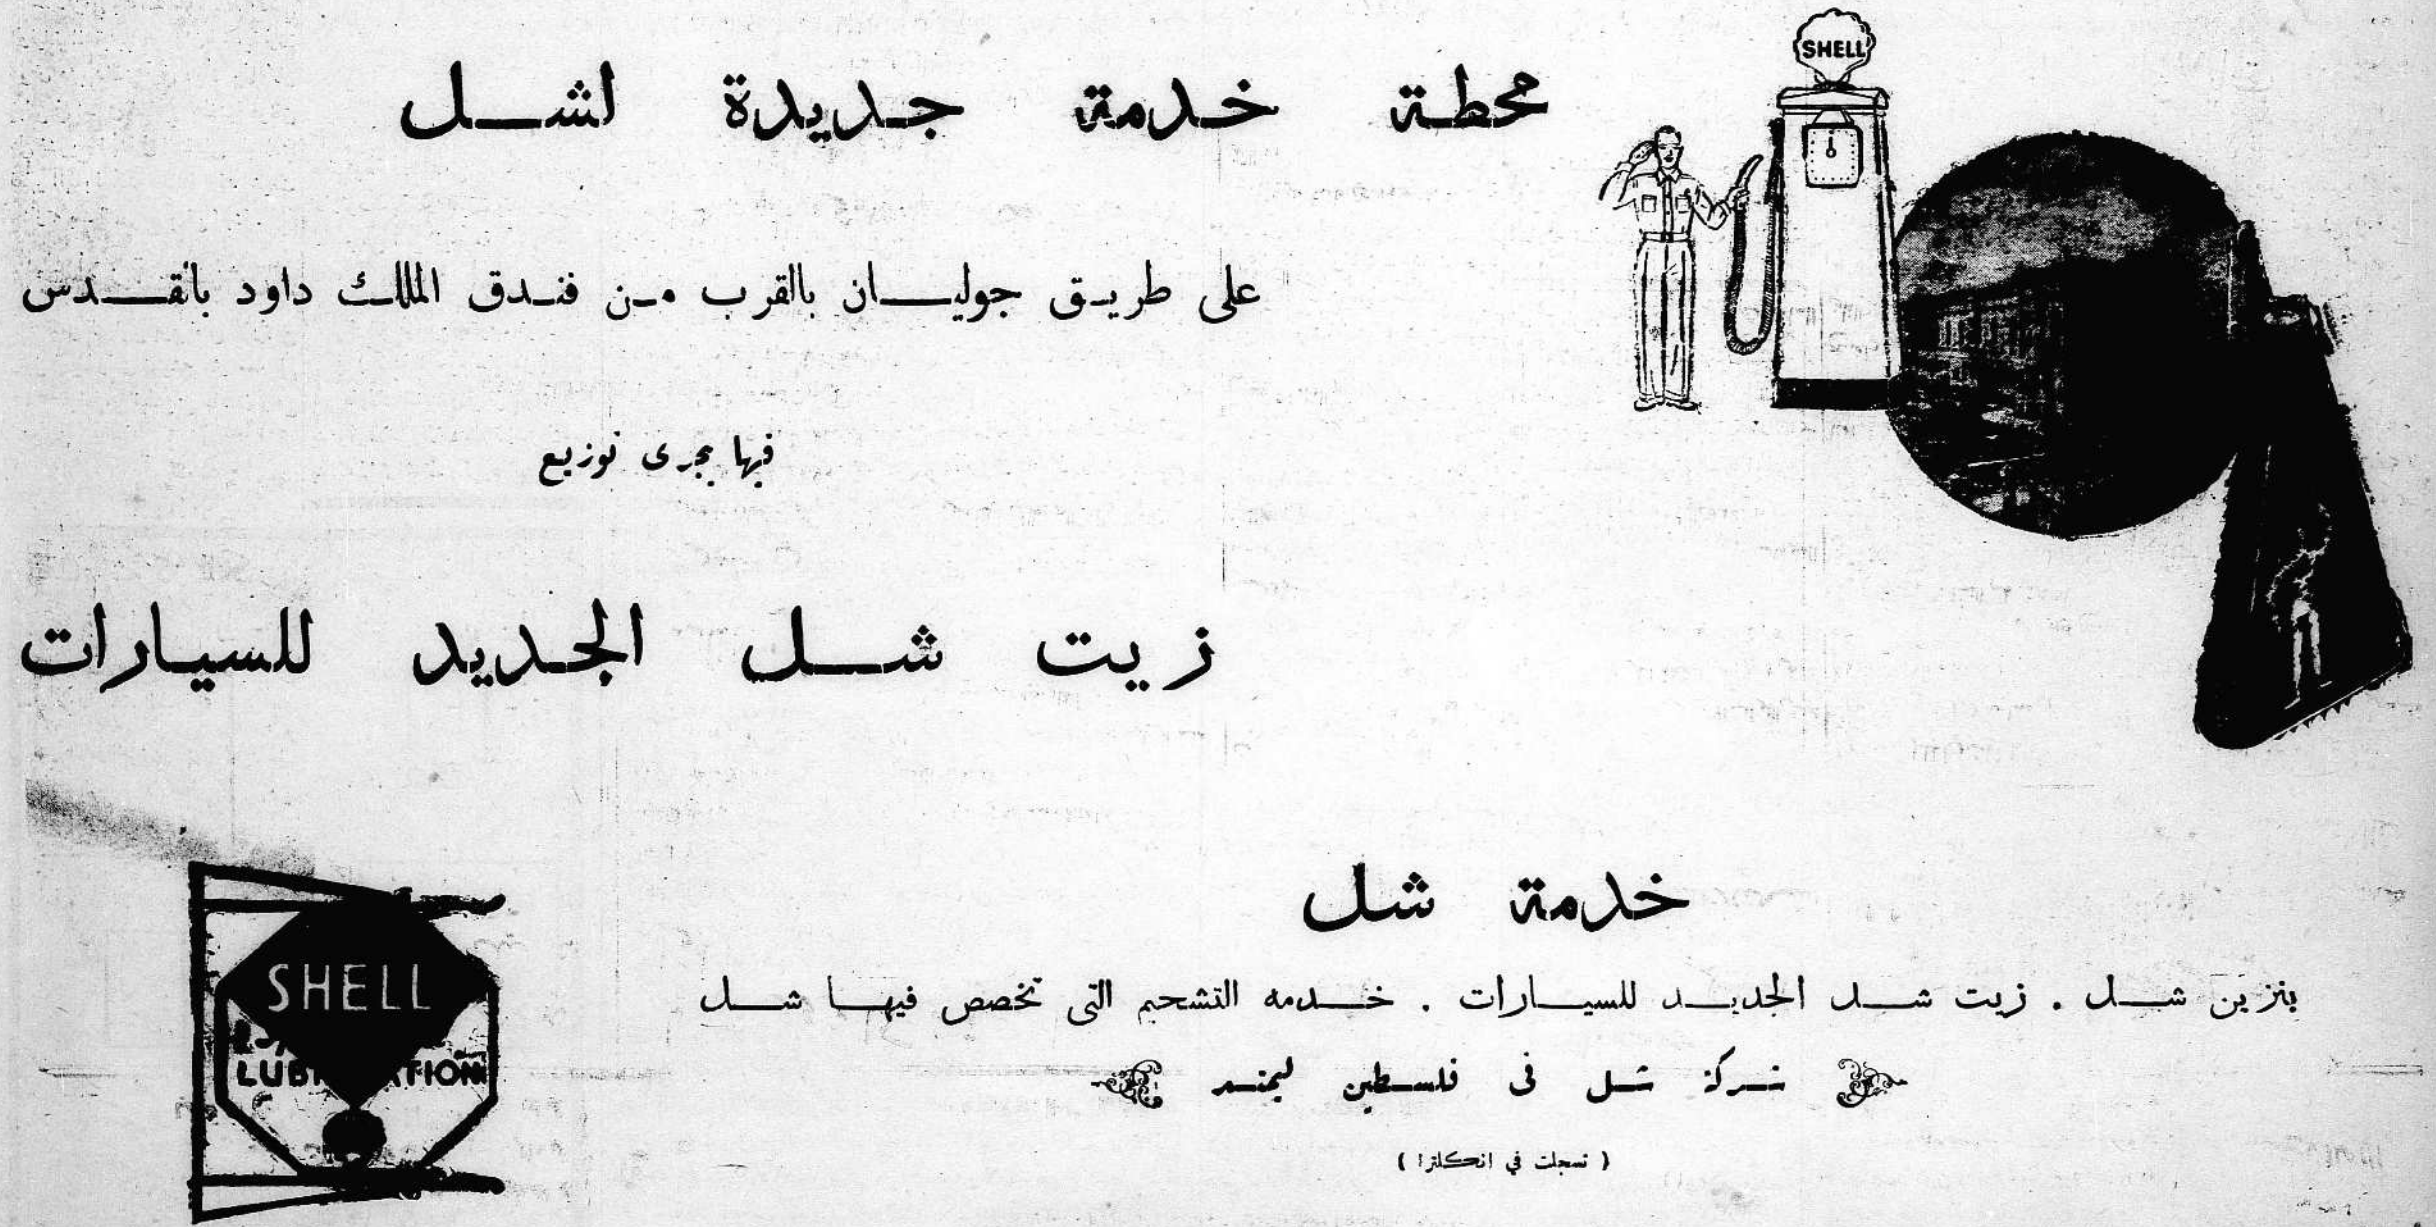 SHELL
محطة خدمة جديدة لشل
على طريق جوليان بالقرب من فندق الملك داود بالقدس
فيها يجرى توزيع
زيت شل الجديد للسيارات
خدمة شل
بنزين شل . زيت شل الجديد للسيارات . خدمه التشحيم التى تخصص فيها شل
شركة شل فى فلسطين ليمتد
( تسجلت في انكلترا )
SHELL